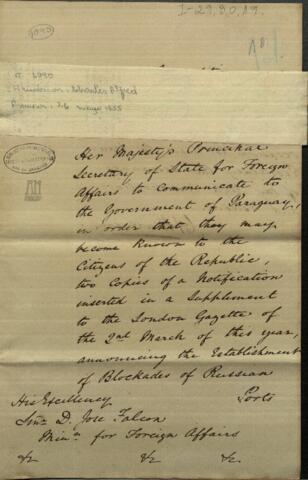 I-29,30,19.
1090
nº 1090
Charles Alfred
26 mayo 1855
Her Majesty's Principal
Secretary of State for Foreign
Affairs to communicate to
the Government of Paraguay,
in order that they may
become Known to the
Citizens of the Republic,
two Copies of a Notification
inserted in a Supplement
to the London Gazette of
the 2nd March of this year,
announcing the Establishment
of Blockades of Russian
Ports
His Excellency
Señr D. Jose Falcon
Minr for Foreign Affairs
&c &c &c.